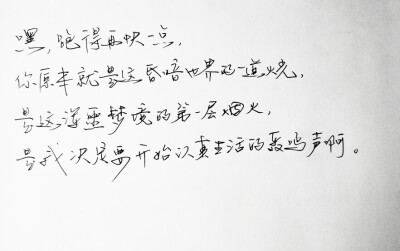 嘿，跑得再快一点，
你原本就是这昏暗世界的一道光，
是这深垩梦境的第一层烟火，
是我决定要开始认真生活的轰鸣声啊。